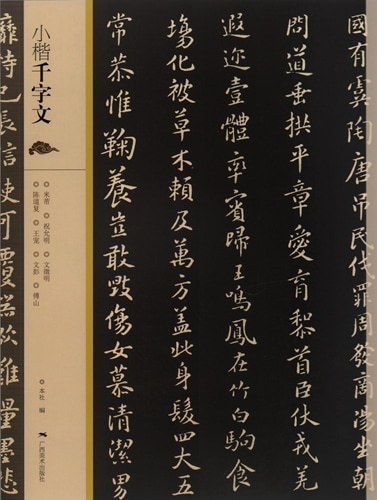 國有虞陶唐吊民伐罪周發商湯坐朝
問道垂拱平章愛育黎首臣伏戎羌
遐迩壹體率賓歸王鳴鳳在竹白駒食
塲化被草木賴及萬方盖此身髮四大五
常恭惟鞠養豈敢毀傷女慕清潔男
小楷千字文
米芾 祝允明 文徵明
陈道复 王宠 文彭 傅山
本社 编
广西美术出版社
靡恃己長信使可覆器欲難量墨悲